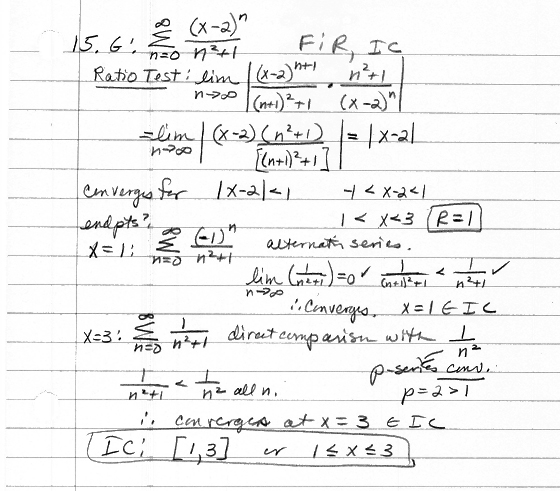 15. G: ∞ Σ n=0 (x-2)^n / n²+1 F: R, IC
Ratio Test: lim n→∞ | (x-2)^(n+1) / (n+1)²+1 · n²+1 / (x-2)^n |
= lim n→∞ | (x-2)(n²+1) / [(n+1)²+1] | = |x-2|
converges for |x-2|<1 -1 < x-2 < 1
endpts? 1 < x < 3 R=1
x=1: ∞ Σ n=0 (-1)^n / n²+1 alternatg series.
lim n→∞ (1/n²+1) = 0 ✓ 1/(n+1)²+1 < 1/n²+1 ✓
∴ Converges. x=1 ∈ IC
x=3: ∞ Σ n=0 1/n²+1 direct comparison with 1/n²
p-series conv.
1/n²+1 < 1/n² all n. p=2>1
∴ converges at x=3 ∈ IC
IC: [1,3] or 1≤x≤3